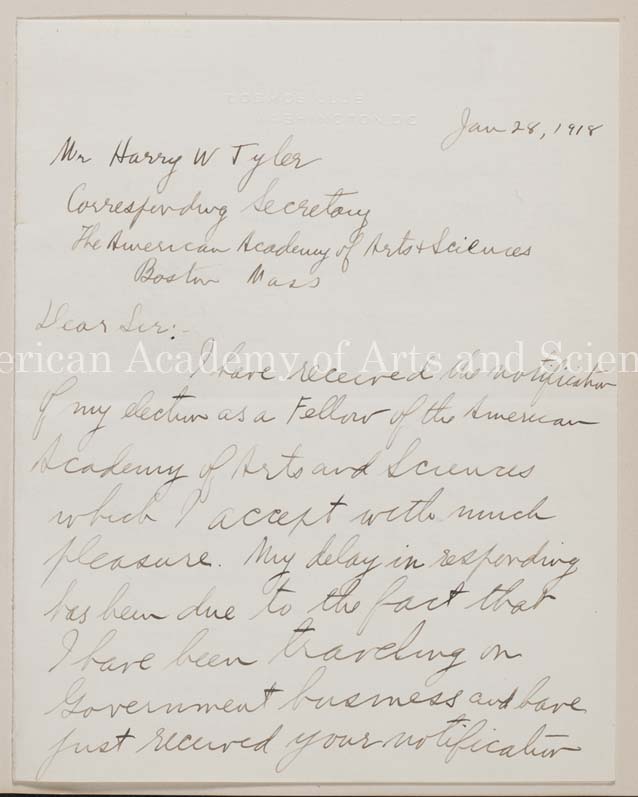 COSMOS CLUB
WASHINGTON, D.C.
Jan 28, 1918
Mr Harry W Tyler
Corresponding Secretary
The American Academy of Arts & Sciences
Boston Mass
Dear Sir:-
American Academy of Arts and Scien
I have received the notification
of my election as a Fellow of the American
Academy of Arts and Sciences
which I accept with much
pleasure. My delay in responding
has been due to the fact that
I have been traveling on
Government business and have
just received your notification